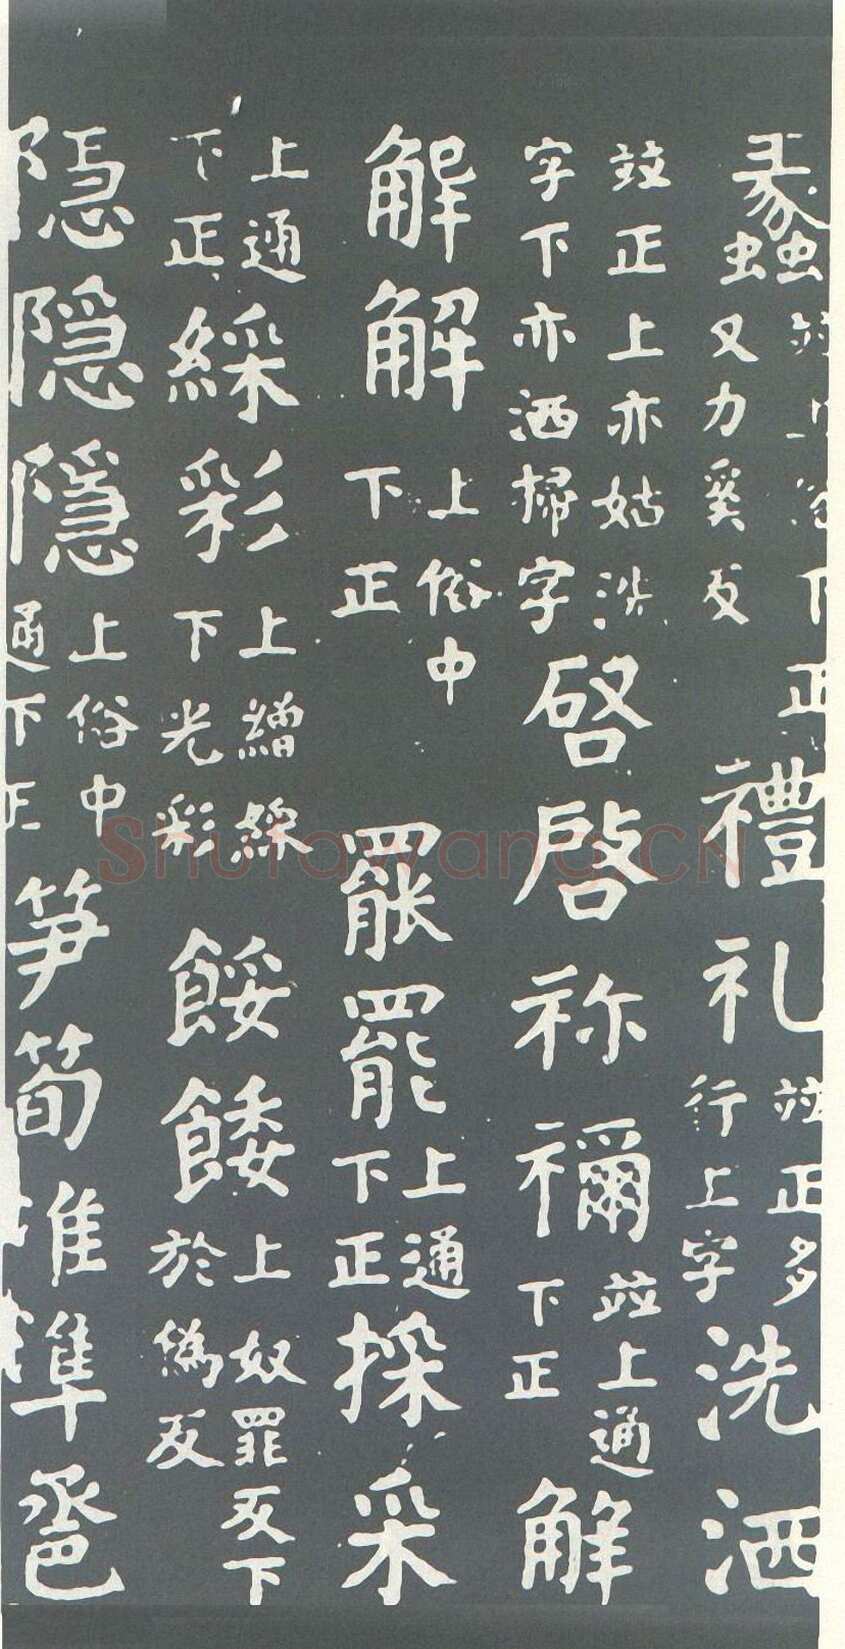 蠡竝上俗下正又力奚反禮礼竝正多行上字洗洒
竝正上亦姑洗字下亦洒掃字啓啓祢禰竝上通下正解
解解上俗中下正罷罷上通下正採采
上通下正綵彩上繒綵下光彩餒餧上奴罪反下於偽反
隠隐隱上俗中通下正笋筍准準
Shufawang.CN